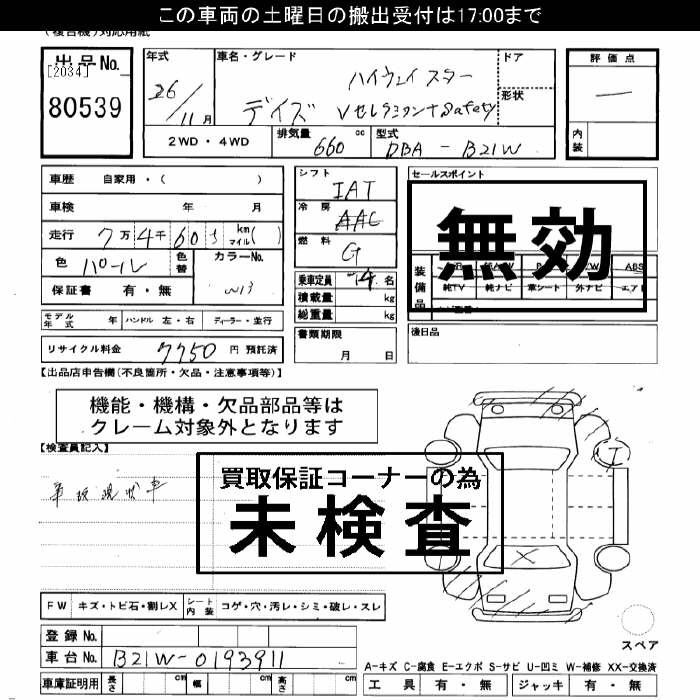 この車両の土曜日の搬出受付は17:00まで
(複合機)対応用紙
出品No.
[2034]
80539
年式
26/11月
車名・グレード
ハイウェイスター
デイズ
ドア
形状
2WD・4WD
排気量
660 cc
型式
DBA - B21W
評価点
内装
車歴 自家用・( )
車検 年 月
走行 7万4千60 km マイル( )
色 パール
色替
カラーNo.
保証書 有・無
モデル年式 年
ハンドル 左・右
ディーラー・並行
リサイクル料金 7750 円 預託済
シフト IAT
冷房 AAC
燃料 G
乗車定員 4名
積載量 kg
総重量 kg
書類期限
月 日
セールスポイント
無効
装備品
ABS
純TV 純ナビ 革シート 外ナビ エアB
後日品
【出品店申告欄(不良箇所・欠品・注意事項等)】
機能・機構・欠品部品等は
クレーム対象外となります
【検査員記入】
買取保証コーナーの為
未検査
FW キズ・トビ石・割レX
シート内装 コゲ・穴・汚レ・シミ・破レ・スレ
登録No.
車台No. B21W-0193911
車庫証明用 長さ cm 幅 cm 高さ cm
スペア
A-キズ C-腐食 E-エクボ S-サビ U-凹ミ W-補修 XX-交換済
工具 有・無 ジャッキ 有・無